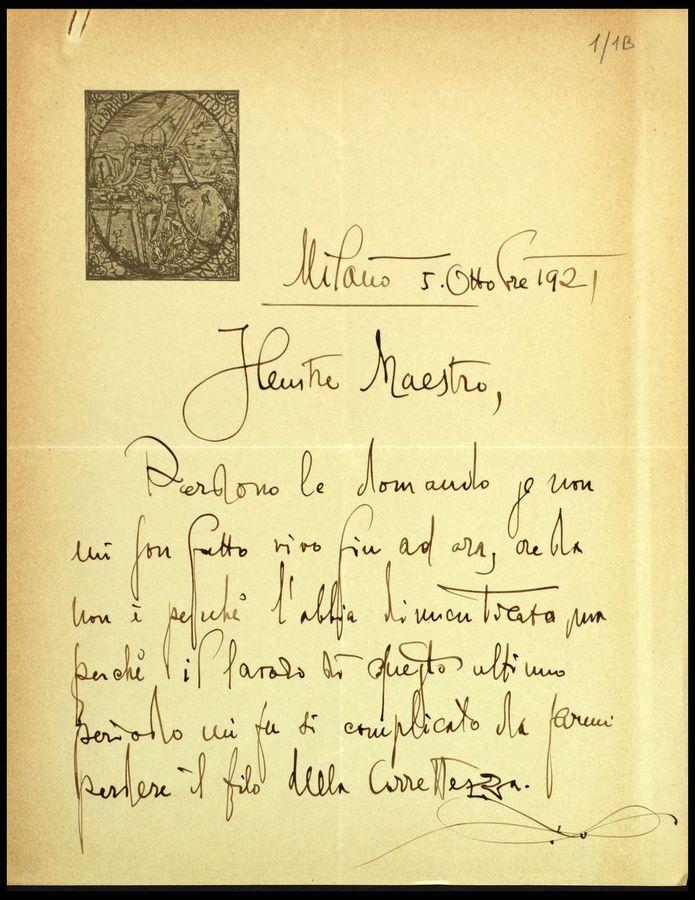 1/1B
Milano 5. Ottobre 1921
Illustre Maestro,
Perdono le domando se non
mi son fatto vivo fin ad ora, creda
non è perchè l'abbia dimenticato, ma
perchè il lavoro di questo ultimo
periodo mi fu sì complicato da farmi
perdere il filo della Correttezza.